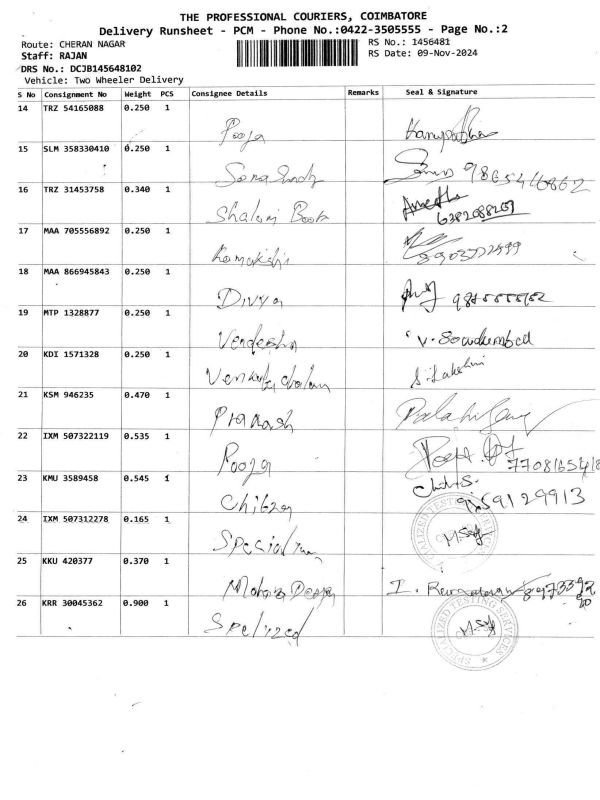 THE PROFESSIONAL COURIERS, COIMBATORE
Delivery Runsheet - PCM - Phone No.:0422-3505555 - Page No.:2
Route: CHERAN NAGAR RS No.: 1456481
Staff: RAJAN RS Date: 09-Nov-2024
DRS No.: DCJB145648102
Vehicle: Two Wheeler Delivery
S No Consignment No Weight PCS Consignee Details Remarks Seal & Signature
14 TRZ 54165088 0.250 1
Pooja
15 SLM 358330410 0.250 1
9865446862
16 TRZ 31453758 0.340 1
Shalom Book
6382088207
17 MAA 705556892 0.250 1
Kamakshi
8903772999
18 MAA 866945843 0.250 1
Divya
19 MTP 1328877 0.250 1
20 KDI 1571328 0.250 1
Venkatachalam S. Lakshmi
21 KSM 946235 0.470 1
Prakash
22 IXM 507322119 0.535 1
Pooja
7708165418
23 KMU 3589458 0.545 1
Chitra 9159129913
24 IXM 507312278 0.165 1
SPECIALIZED TESTING SERVICES
25 KKU 420377 0.370 1
26 KRR 30045362 0.900 1
Spelized
SPECIALIZED TESTING SERVICES